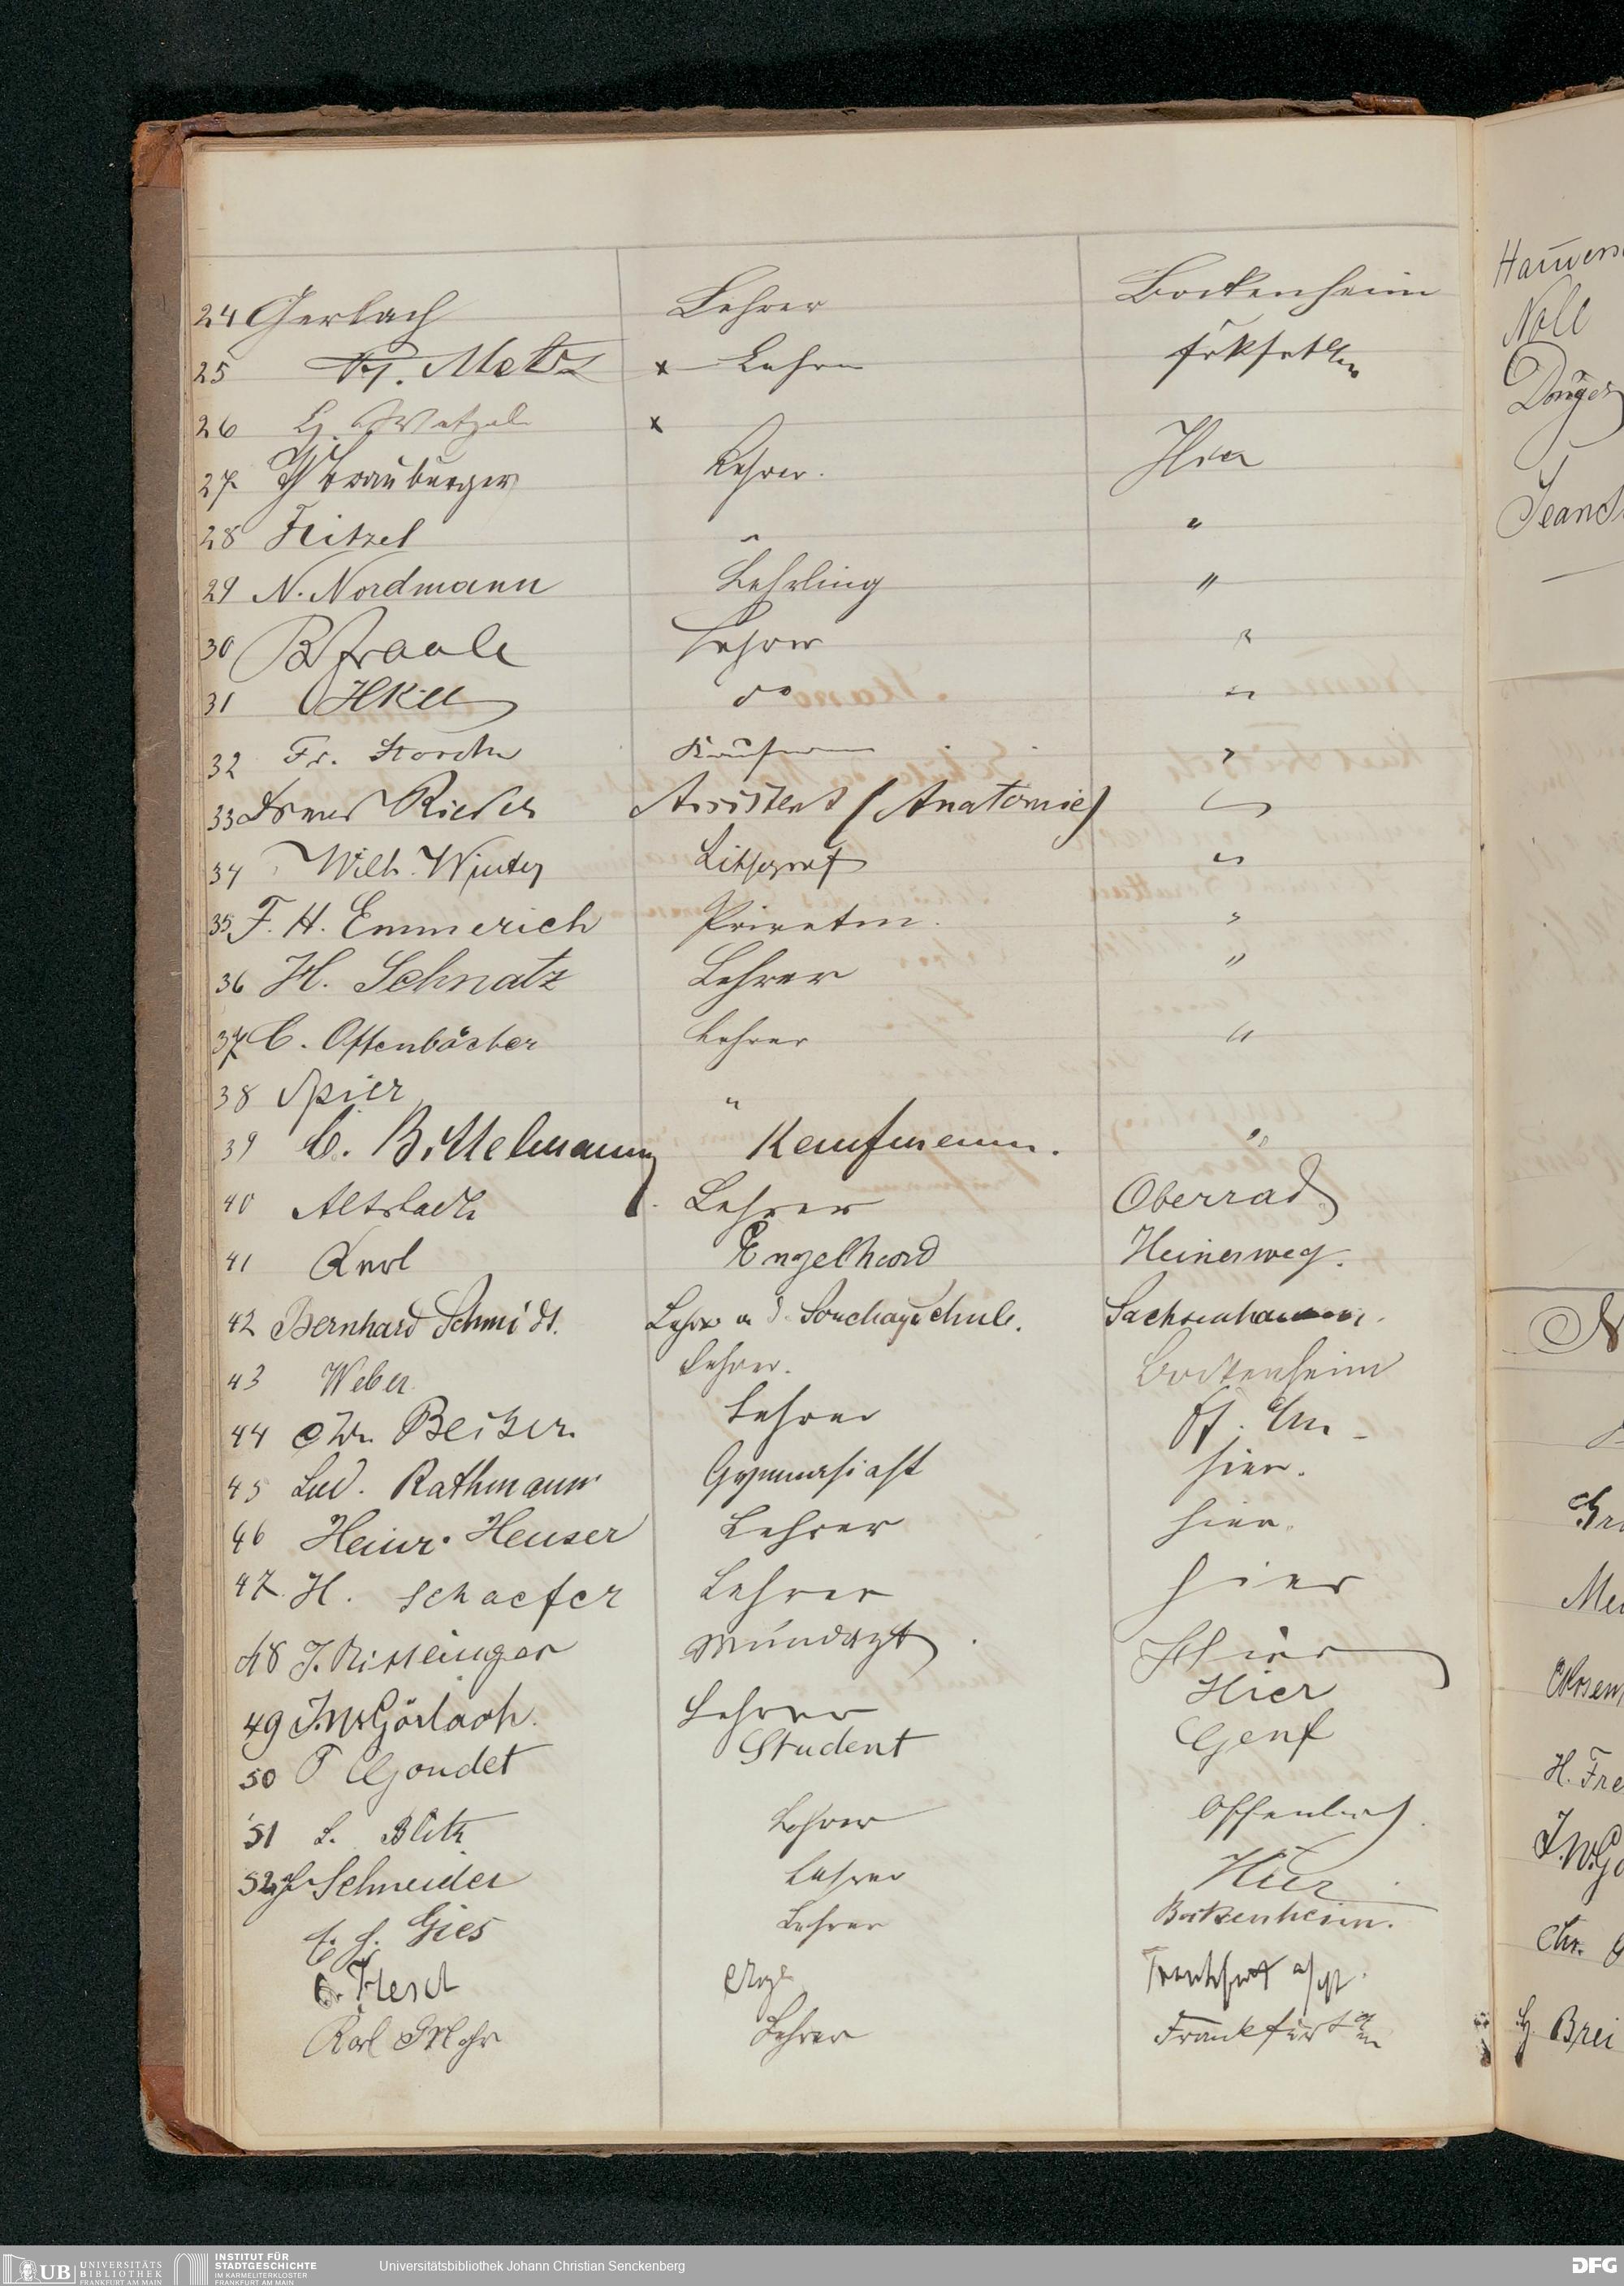 24 Gerlach Lehrer Bockenheim
25 Metz x Lehrer
26 Wetzel x
27 Lehrer. Hier
28 Fritzel " "
29 N. Nordmann Lehrling "
30 Lehrer "
31 do "
32 Fr. Storch Kaufmann "
33 Assistent (Anatomie) "
34 Wilh. Winter Lithograf "
35 F. H. Emmerich Privatm. "
36 H. Schnatz Lehrer "
37 C. Offenbächer Lehrer "
38 Spier "
39 C. Bittelmann Kaufmann. "
40 Lehrer Oberrad
41 Karl Engelhard Heinerweg.
42 Bernhard Schmidt. Lehrer a. d. Souchayschule. Sachsenhausen.
43 Weber Lehrer. Bockenheim
44 Lehrer
45 Lud. Rathmann Gymnasiast hier.
46 Heinr. Heuser Lehrer hier.
47. H. Schaefer Lehrer hier
48 J. Wundarzt Hier
49 J. W. Görlach. Lehrer Hier
50 Student Genf
51 L. Blitz Lehrer Offenbach
52 Schneider Lehrer Hier
Gies Lehrer Bockenheim.
Flesch Frankfurt a/M.
Karl Mohr Lehrer Frankfurt a m
Noll
H. Fre
Chr.
Brei
UB UNIVERSITÄTS
BIBLIOTHEK
FRANKFURT AM MAIN
INSTITUT FÜR
STADTGESCHICHTE
IM KARMELITERKLOSTER
FRANKFURT AM MAIN
Universitätsbibliothek Johann Christian Senckenberg
DFG